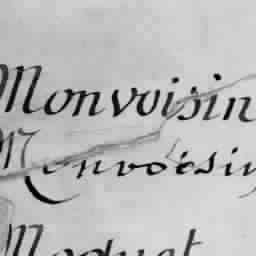 Monvoisin
Monvoisin